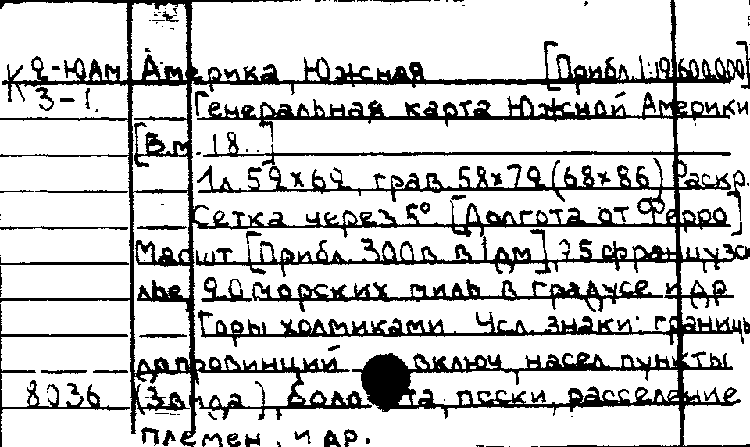 К 2-ЮАм Америка Южная [Прибл. 1:19600000]
3-1. Генеральная карта Южной Америки
[В.м. 18..]
1л. 52×62, грав. 58×72 (68×86) Раскр.
Сетка через 5° [Долгота от Ферро]
Масшт [Прибл. 300в. в 1дм], 75 французс
лье, 20 морских миль в градусе и др
Горы холмиками. Усл. знаки: границы
до провинций включ, насел пункты
8036 (3 вида), боло та, пески, расселение
племен, и др.